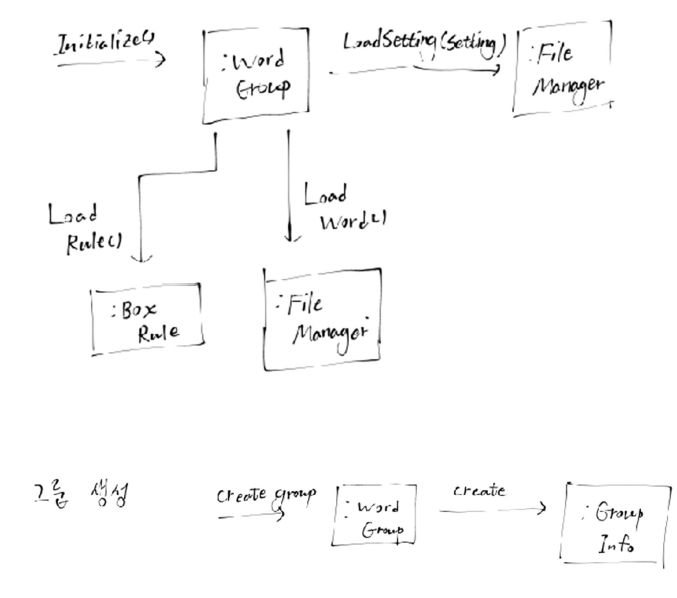 Initialize()
:Word
Group
LoadSetting(Setting)
:File
Manager
Load
Rule()
Load
Word()
:Box
Rule
:File
Manager
그룹 생성
create group
:Word
Group
create
:Group
Info